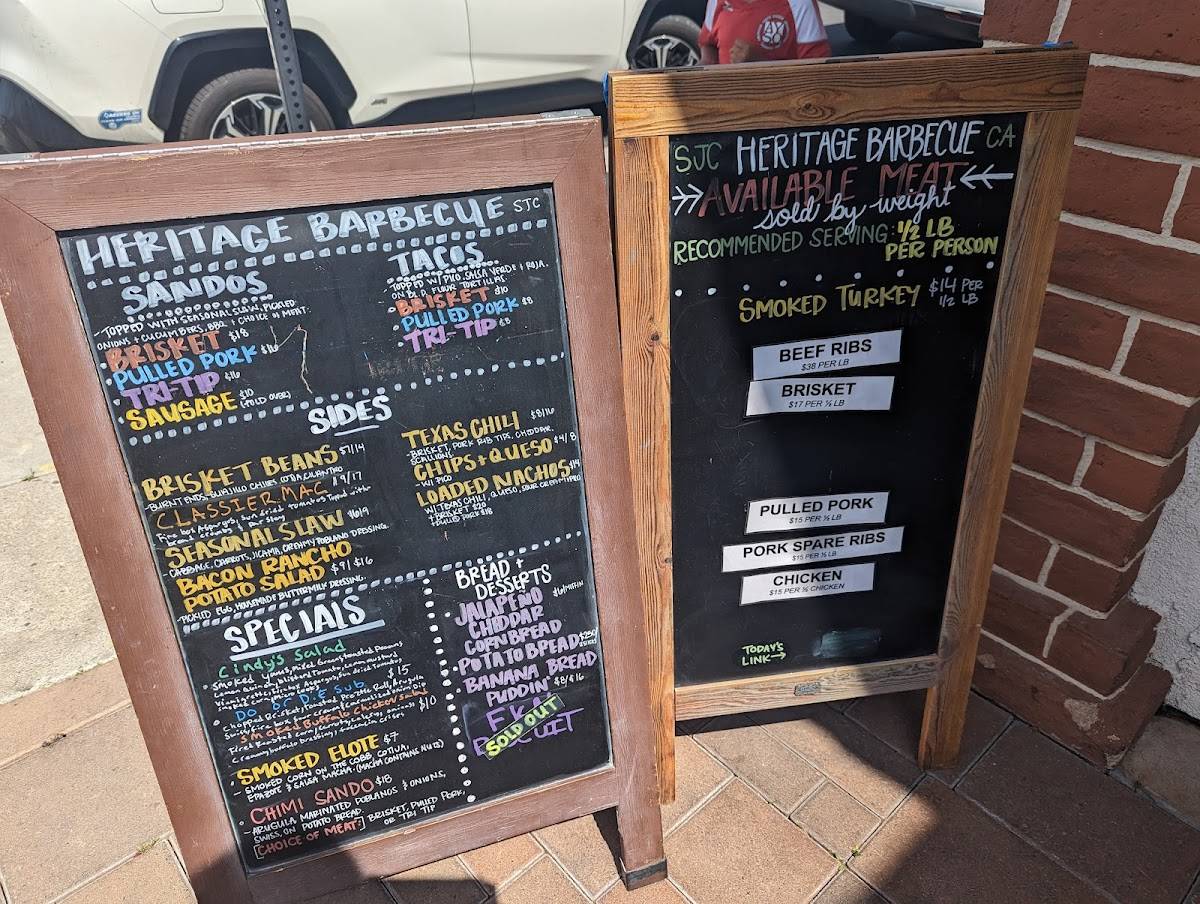 HERITAGE BARBECUE SJC
SANDOS
- TOPPED WITH SEASONAL SLAW, PICKLED
ONIONS + CUCUMBERS, BBQ + CHOICE OF MEAT.
• BRISKET $18
• PULLED PORK $16
• TRI-TIP $16
• SAUSAGE $10
TACOS
TOPPED W/ PICO, SALSA VERDE + ROJA.
ON FLOUR TORTILLAS
• BRISKET $10
• PULLED PORK $8
• TRI-TIP $8
SIDES
BRISKET BEANS $7/14
- BURNT ENDS, GUAJILLO CHILIES, COTIJA, CILANTRO
CLASSIER MAC $9/17
SEASONAL SLAW $6/9
- CABBAGE, CARROTS, JICAMA, CREAMY POBLANO DRESSING.
BACON RANCHO
POTATO SALAD $9/$16
- PICKLED EGG, HOUSEMADE BUTTERMILK DRESSING.
TEXAS CHILI $8/16
- BRISKET, PORK RIB TIPS, CHEDDAR,
SCALLIONS
CHIPS + QUESO $4/8
- W/ PICO
LOADED NACHOS $14
- W/ TEXAS CHILI, QUESO, SOUR CREAM + PICO
+ BRISKET $20
+ PULLED PORK $18
SPECIALS
• Cindy's Salad
• smoked yams, mixed Greens, toasted Pecans
$15
• DO or DIE Sub
chopped Brisket, toasted Pretzel Roll, Arugula
• smoked Buffalo Chicken Salad $10
• SMOKED ELOTE $7
- SMOKED CORN ON THE COBB, COTIJA,
EPAZOTE & SALSA MACHA. (MACHA CONTAINS NUTS)
• CHIMI SANDO $18
- ARUGULA, MARINATED POBLANOS & ONIONS,
SWISS, ON POTATO BREAD.
[CHOICE OF MEAT:] BRISKET, PULLED PORK,
OR TRI TIP
BREAD +
DESSERTS
• JALAPEÑO
CHEDDAR
CORN BREAD
$6/MUFFIN
• POTATO BREAD
• BANANA BREAD
PUDDIN' $8/$16
SOLD OUT
SJC HERITAGE BARBECUE CA
AVAILABLE MEAT
sold by weight
RECOMMENDED SERVING: 1/2 LB
PER PERSON
SMOKED TURKEY $14 PER
1/2 LB
BEEF RIBS
$38 PER LB
BRISKET
$17 PER ½ LB
PULLED PORK
$15 PER ½ LB
PORK SPARE RIBS
$15 PER ½ LB
CHICKEN
$15 PER ½ CHICKEN
TODAY'S
LINK→